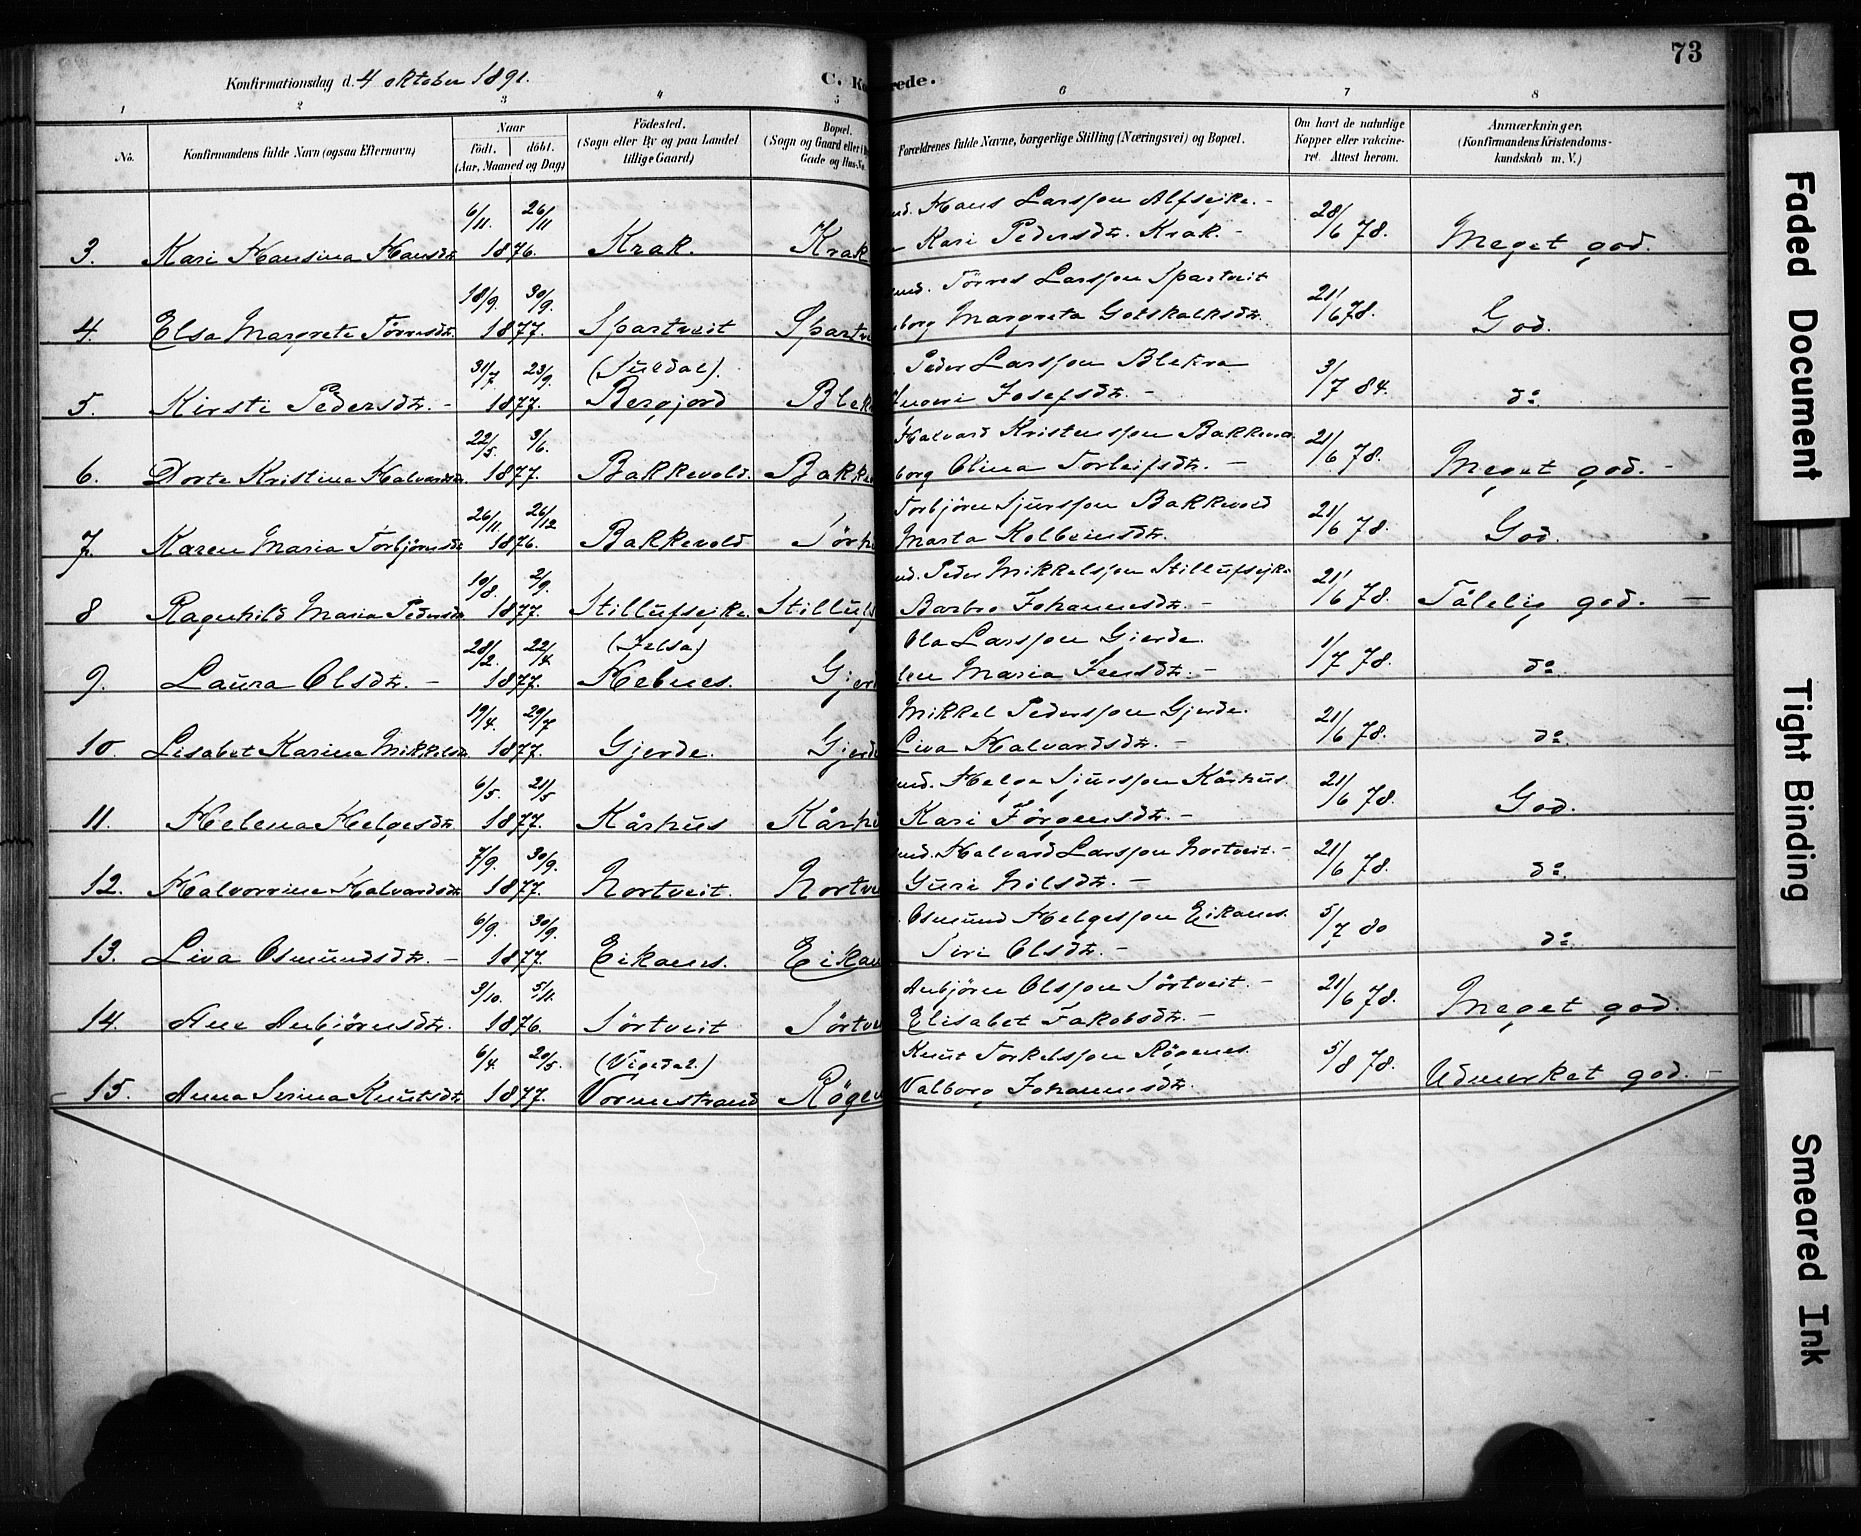 73
Konfirmationsdag d. 4 oktober 1891. C. Ko rede.
1 2 3 4 5 6 7 8
No. Konfirmandens fulde Navn (ogsaa Efternavn) Naar födt. döbt. (Aar, Maaned og Dag) Födested. (Sogn eller By og paa Landet tillige Gaard) Bopæl. (Sogn og Gaard eller Gade og Hus-No. Forældrenes fulde Navne, borgerlige Stilling (Næringsvei) og Bopæl. Om havt de naturlige Kopper eller vakcineret. Attest herom. Anmærkninger. (Konfirmandens Kristendomskundskab m. V.)
6/11. 26/11 Hans Larsson Alfsejke. - 28/6 78.
3. Kari Hansina Hansdtr 1876. Krak. Krak Kari Pedersdtr. Krak. - Meget god.
18/9. 30/9. Törres Larsson Spartveit 21/6 78.
4. Elsa Margrete Törresdtr. 1877. Spartveit Spartve borg Margreta Gotskalksdtr. God.
31/7 23/9. (Suldal). Peder Larsson Blekra 3/7 84.
5. Kirsti Pedersdtr. - 1877. Bergjord Blek Josefsdtr. - do
22/5 3/6. Halvard Kristensson Bakkevo 21/6 78.
6. Dorte Kristine Halvardsdtr 1877. Bakkevold. Bakke borg Olina Torleifsdtr. - Meget god. -
26/11. 26/12 Torbjörn Sjursson Bakkevold 21/6 78.
7. Karen Maria Torbjörnsdtr 1876. Bakkevold Törh Marta Kolbeinsdtr. God.
19/8. 2/9. Peder Mikkelsson Stillufsejke 21/6 78.
8 Ragnhild Maria Pedersdtr 1877. Stillufsejke. Stillufs Barbro Johannesdtr. - Tålelig god. -
28/2. 22/4. (Jelsa) Ola Larsson Gjerde. 1/7 78.
9. Laura Olsdtr. - 1877. Hebnes. Gjer Maria Jensdtr. - do
19/4. 29/7 Mikkel Pedersson Gjerde. 21/6 78.
10. Lisabet Karina Mikkelsdtr 1877. Gjerde. Gjerd Liva Halvardsdtr. - do
6/5. 21/5 Helge Sjursson Kårhus. 21/6 78.
11. Helena Helgesdtr. 1877. Kårhus Kårh Kari Jörgensdtr. - God.
7/9. 30/9. Halvard Larsson Nortveit. - 21/6 78.
12. Halvorrine Halvardsdtr 1877. Nortveit. Nortve Guri Nilsdtr. - do
6/9. 30/9. Osmund Helgesson Eikanes. 5/7 80
13. Liva Osmundsdtr. - 1877. Eikanes. Eikan Siri Olsdtr. - do
3/10. 5/11. Anbjörn Olsson Sörtveit. - 21/6 78.
14. Ane Anbjörnsdtr. 1876. Sörtveit Sörtve Elisabet Jakobsdtr. - Meget god.
6/4 20/5. (Vigedal.) Knut Torkelsson Rögenes. 5/8 78.
15. Anna Serina Knutsdtr 1877. Vormestrand Rögen Valborg Johannesdtr. Udmerket god. -
Faded Document
Tight Binding
Smeared Ink